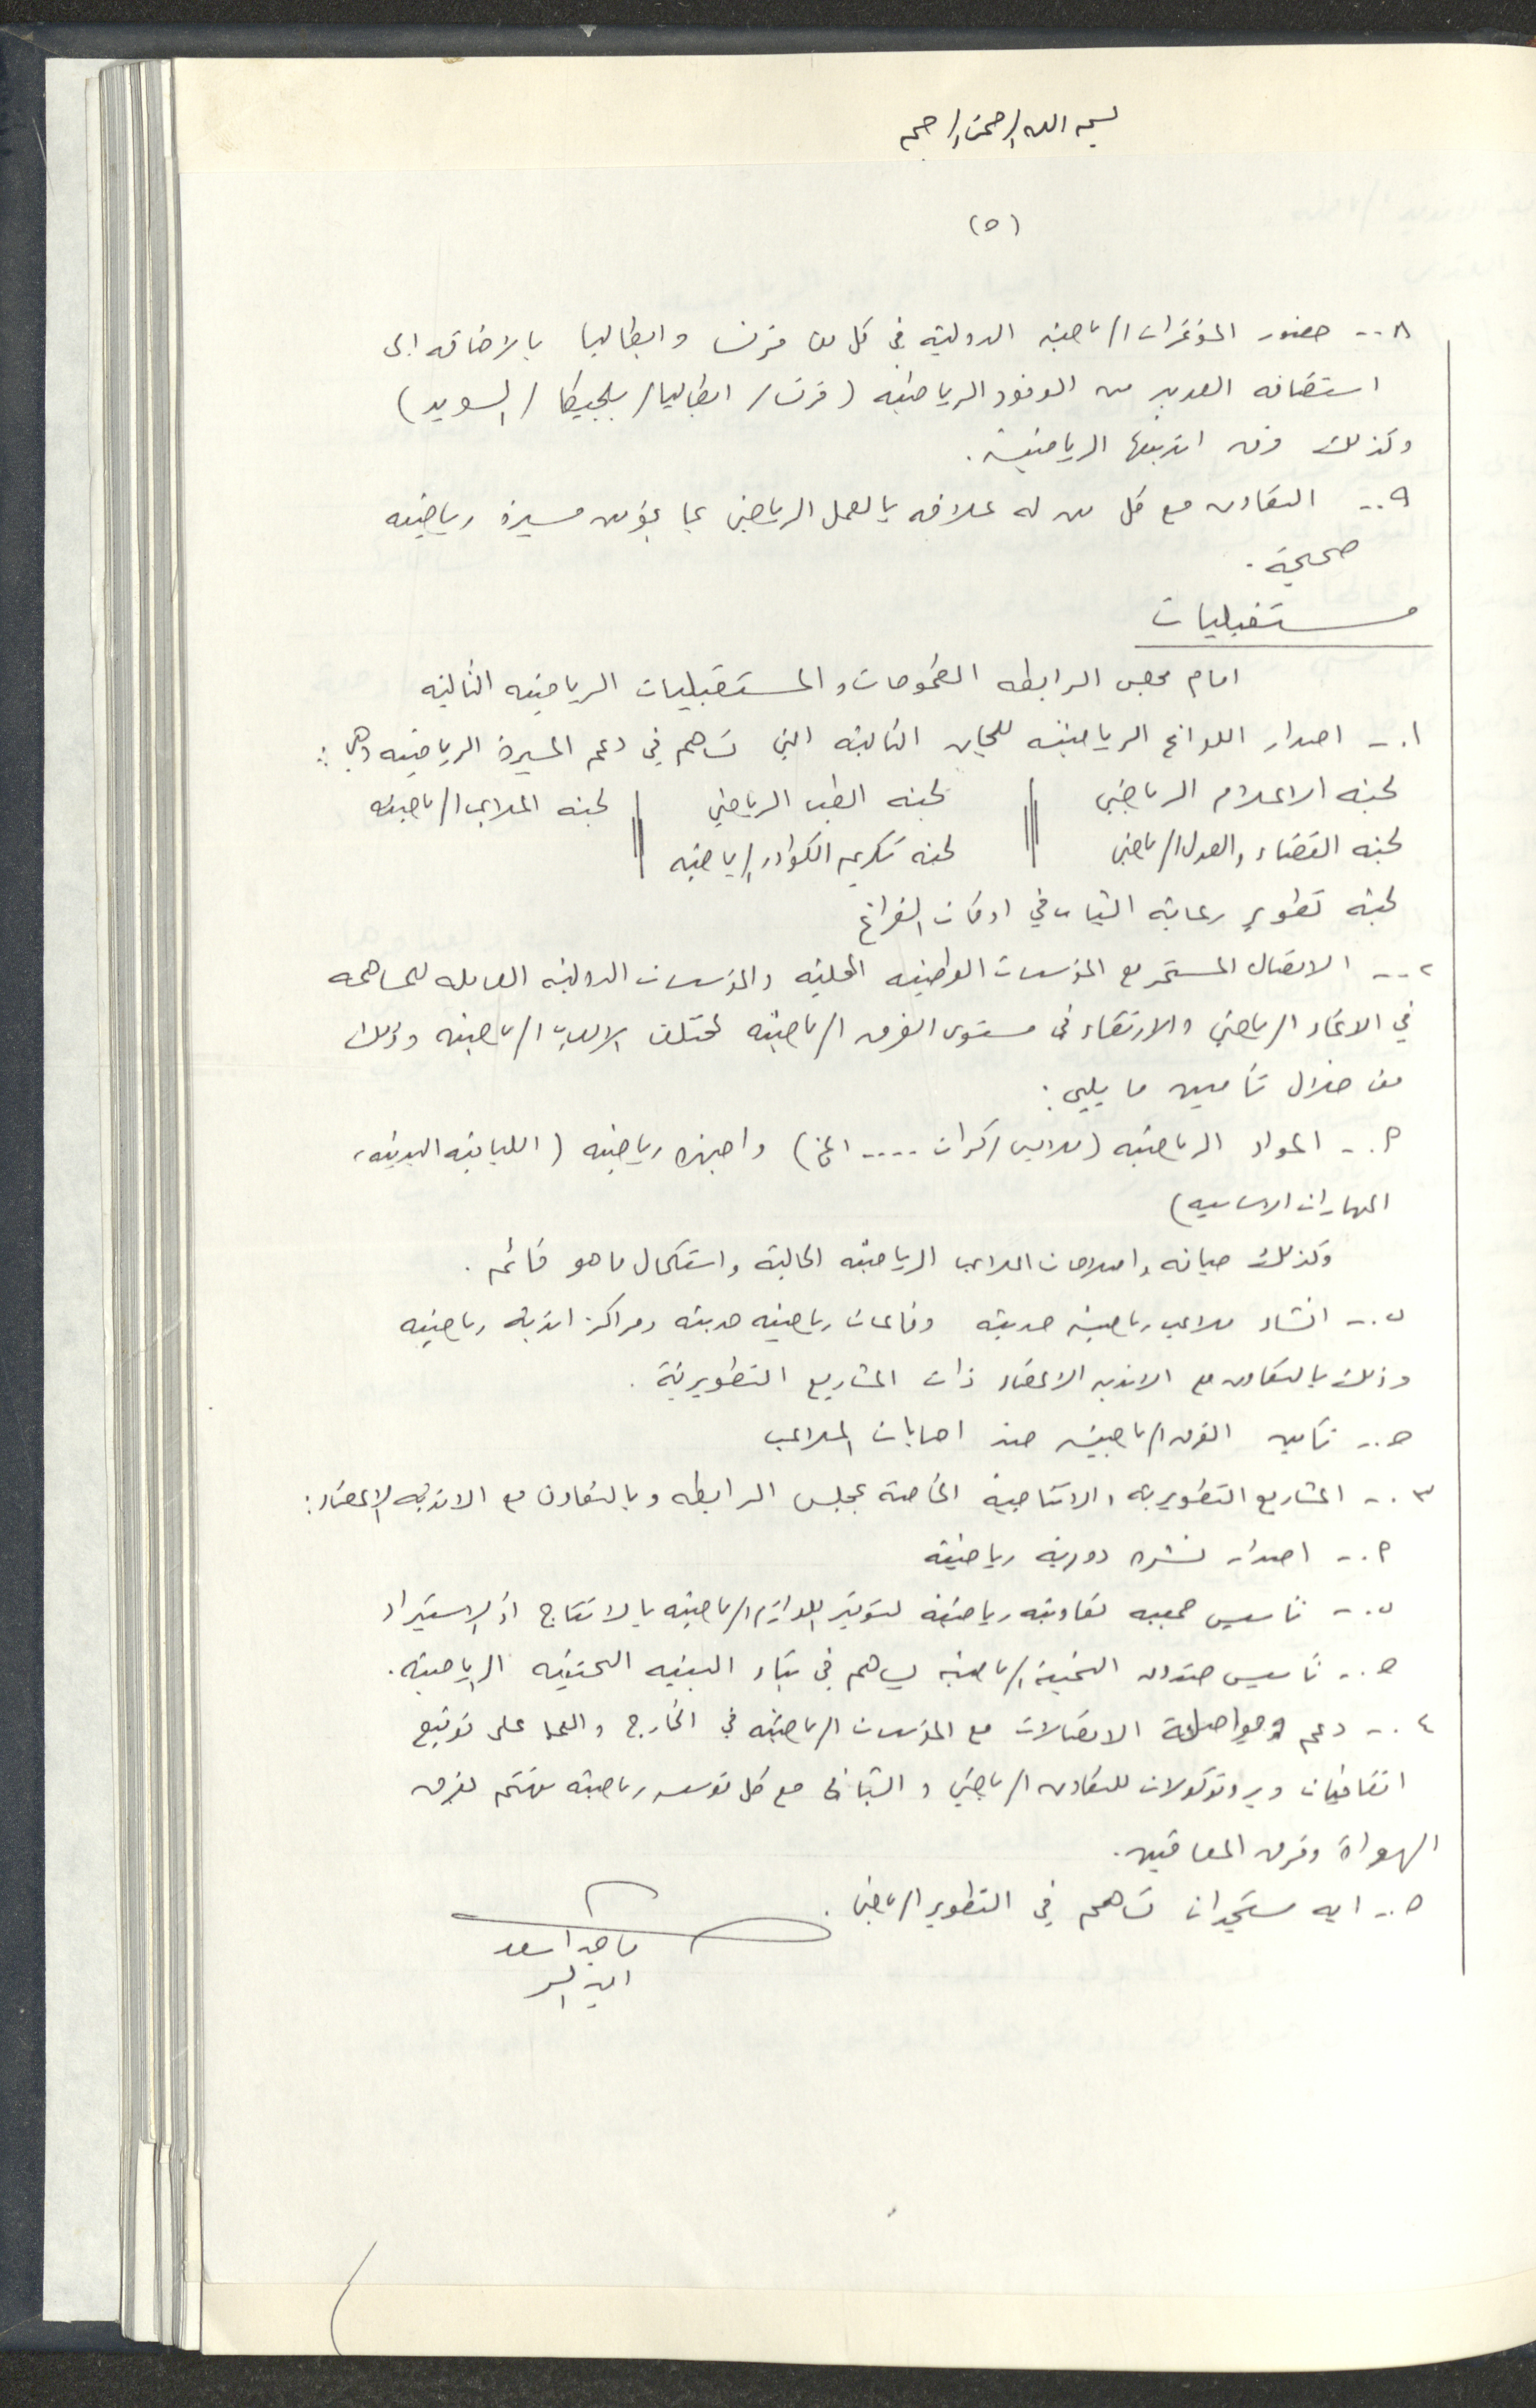 بسم الله الرحمن الرحيم
(٥)
٨.- حضور المؤتمرات الرياضيه الدولية في كل من فرنسا وايطاليا بالاضافه الى
استضافه العديد من الوفود الرياضيه (فرنسا/ ايطاليا/ بلجيكا/ السويد)
وكذلك فرق انديتها الرياضية.
٩.- التعاون مع كل من له علاقه بالعمل الرياضي بما يؤمن مسيرة رياضيه
صحيحة.
مستقبليات
امام مجلس الرابطه الطموحات والمستقبليات الرياضيه التاليه
١.- اصدار اللوائح الرياضيه للجان التاليه التي تساهم في دعم المسيرة الرياضيه وهي:
لجنه الاعلام الرياضي || لجنه الطب الرياضي || لجنه الملاعب الرياضيه
لجنه القضاء والعدل الرياضي || لجنه تكريم الكوادر الرياضيه
لجنه تطوير رعاية الشباب في اوقات الفراغ
٢.- الاتصال المستمر مع المؤسسات الوطنيه المحليه والمؤسسات الدوليه العامله للمساهمه
في الانماء الرياضي والارتقاء في مستوى الفرق الرياضيه لمختلف الالعاب الرياضيه وذلك
من خلال تأمين ما يلي:
٩.- المواد الرياضيه (ملابس/كرات .... الخ) واجهزه رياضيه (اللياقه البدنيه،
المهارات الاساسيه)
وكذلك صيانه واصلاحات الملاعب الرياضيه الحالية واستكمال ما هو قائم.
ب.- انشاء ملاعب رياضيه حديثه وقاعات رياضيه حديثه ومراكز انديه رياضيه
وذلك بالتعاون مع الانديه الاعضاء ذات المشاريع التطويرية.
ج.- تأمين الفرق الرياضيه ضد اصابات الملاعب
٣.- المشاريع التطويريه والانتاجية الخاصة بمجلس الرابطه وبالتعاون مع الانديه الاعضاء:
٩.- اصدار نشره دورية رياضية
ب.- تأسيس جمعيه تعاونيه رياضيه لتوفير اللوازم الرياضيه بالانتاج او الاستيراد
ج.- تأسيس صندوق التنمية الرياضيه يساهم في بناء البنيه التحتيه الرياضيه.
٤.- دعم ومواصلة الاتصالات مع المؤسسات الرياضيه في الخارج والعمل على توقيع
اتفاقيات وبروتوكولات للتعاون الرياضي والشبابي مع كل مؤسسه رياضيه تهتم بفرق
الهواة وفرق المعاقين.
٥.- ايه مستجدات تساهم في التطوير الرياضي.
ماجد اسعد
امين السر